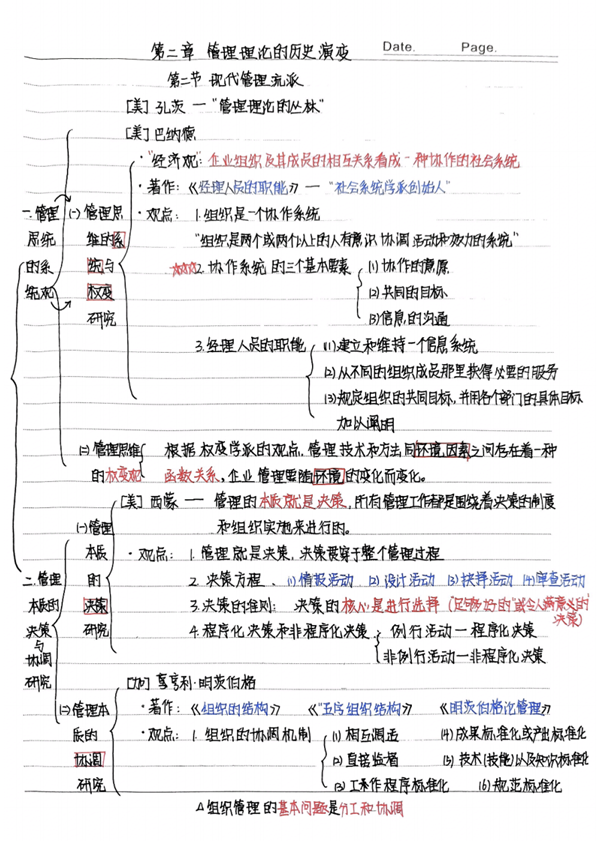 Date. Page.
第二章 管理理论的历史演变
第二节 现代管理流派
[美] 孔茨 — "管理理论的丛林"
[美] 巴纳德
·"经济观": 企业组织及其成员的相互关系看成一种协作的社会系统
·著作: 《经理人员的职能》 — "社会系统学派创始人"
一.管理思统的系统观
(一) 管理思维的系统与权变研究
·观点: 1.组织是一个协作系统
"组织是两个或两个以上的人有意识协调活动和效力的系统"
☆☆☆2.协作系统的三个基本要素
(1)协作的意愿
(2)共同的目标
(3)信息的沟通
3.经理人员的职能
(1)建立和维持一个信息系统
(2)从不同的组织成员那里获得必要的服务
(3)规定组织的共同目标,并用各个部门的具体目标
加以阐明
(二)管理思维的权变观
根据权变学派的观点,管理技术和方法同环境因素之间存在着一种
函数关系,企业管理要随环境的变化而变化。
二.管理本质的决策与协调研究
(一)管理本质的决策研究
[美] 西蒙 — 管理的本质就是决策,所有管理工作都是围绕着决策的制度
和组织实施来进行的。
·观点: 1.管理就是决策,决策贯穿于整个管理过程
2.决策方程、(1)情报活动 (2)设计活动 (3)抉择活动 (4)审查活动
3.决策的准则: 决策的核心是进行选择 (足够好的"或令人满意的"决策)
4.程序化决策和非程序化决策
例行活动—程序化决策
非例行活动—非程序化决策
(二)管理本质的协调研究
[加] 亨利·明茨伯格
·著作: 《组织的结构》 《"五序组织结构》 《明茨伯格论管理》
·观点: 1.组织的协调机制
(1)相互调适 (4)成果标准化或产出标准化
(2)直接监督 (5)技术(技能)以及知识标准化
(3)工作程序标准化 (6)规范标准化
△组织管理的基本问题是分工和协调